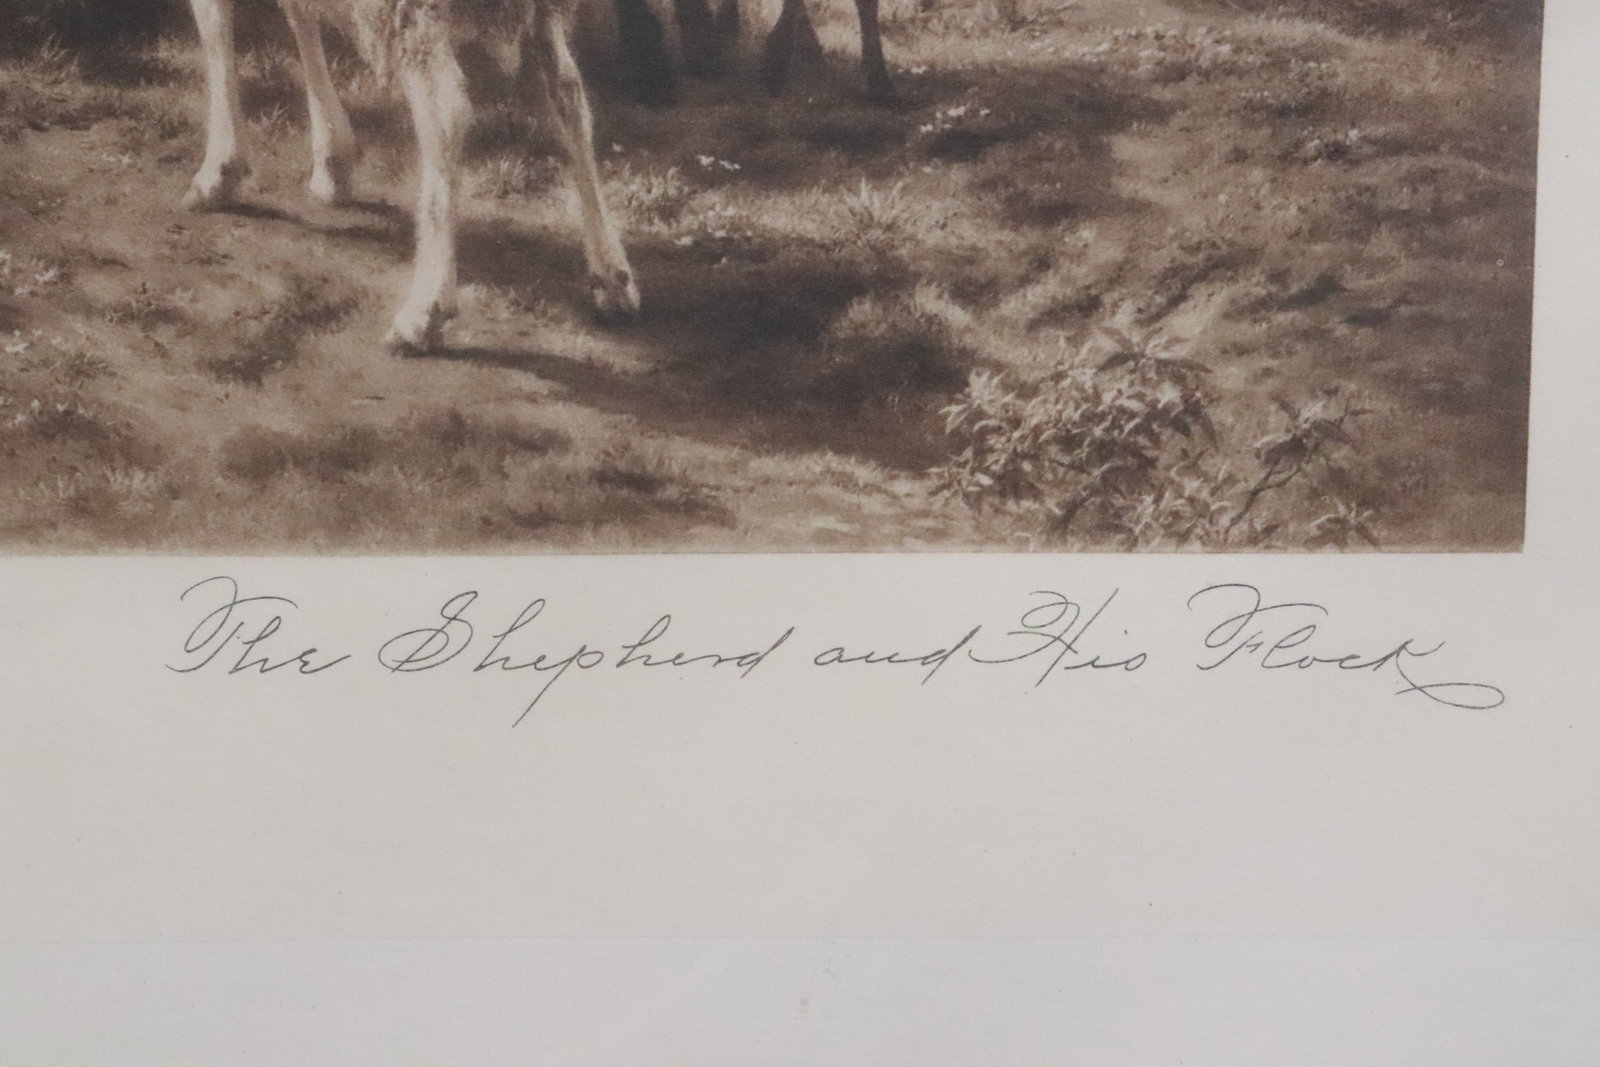 The Shepherd and His Flock